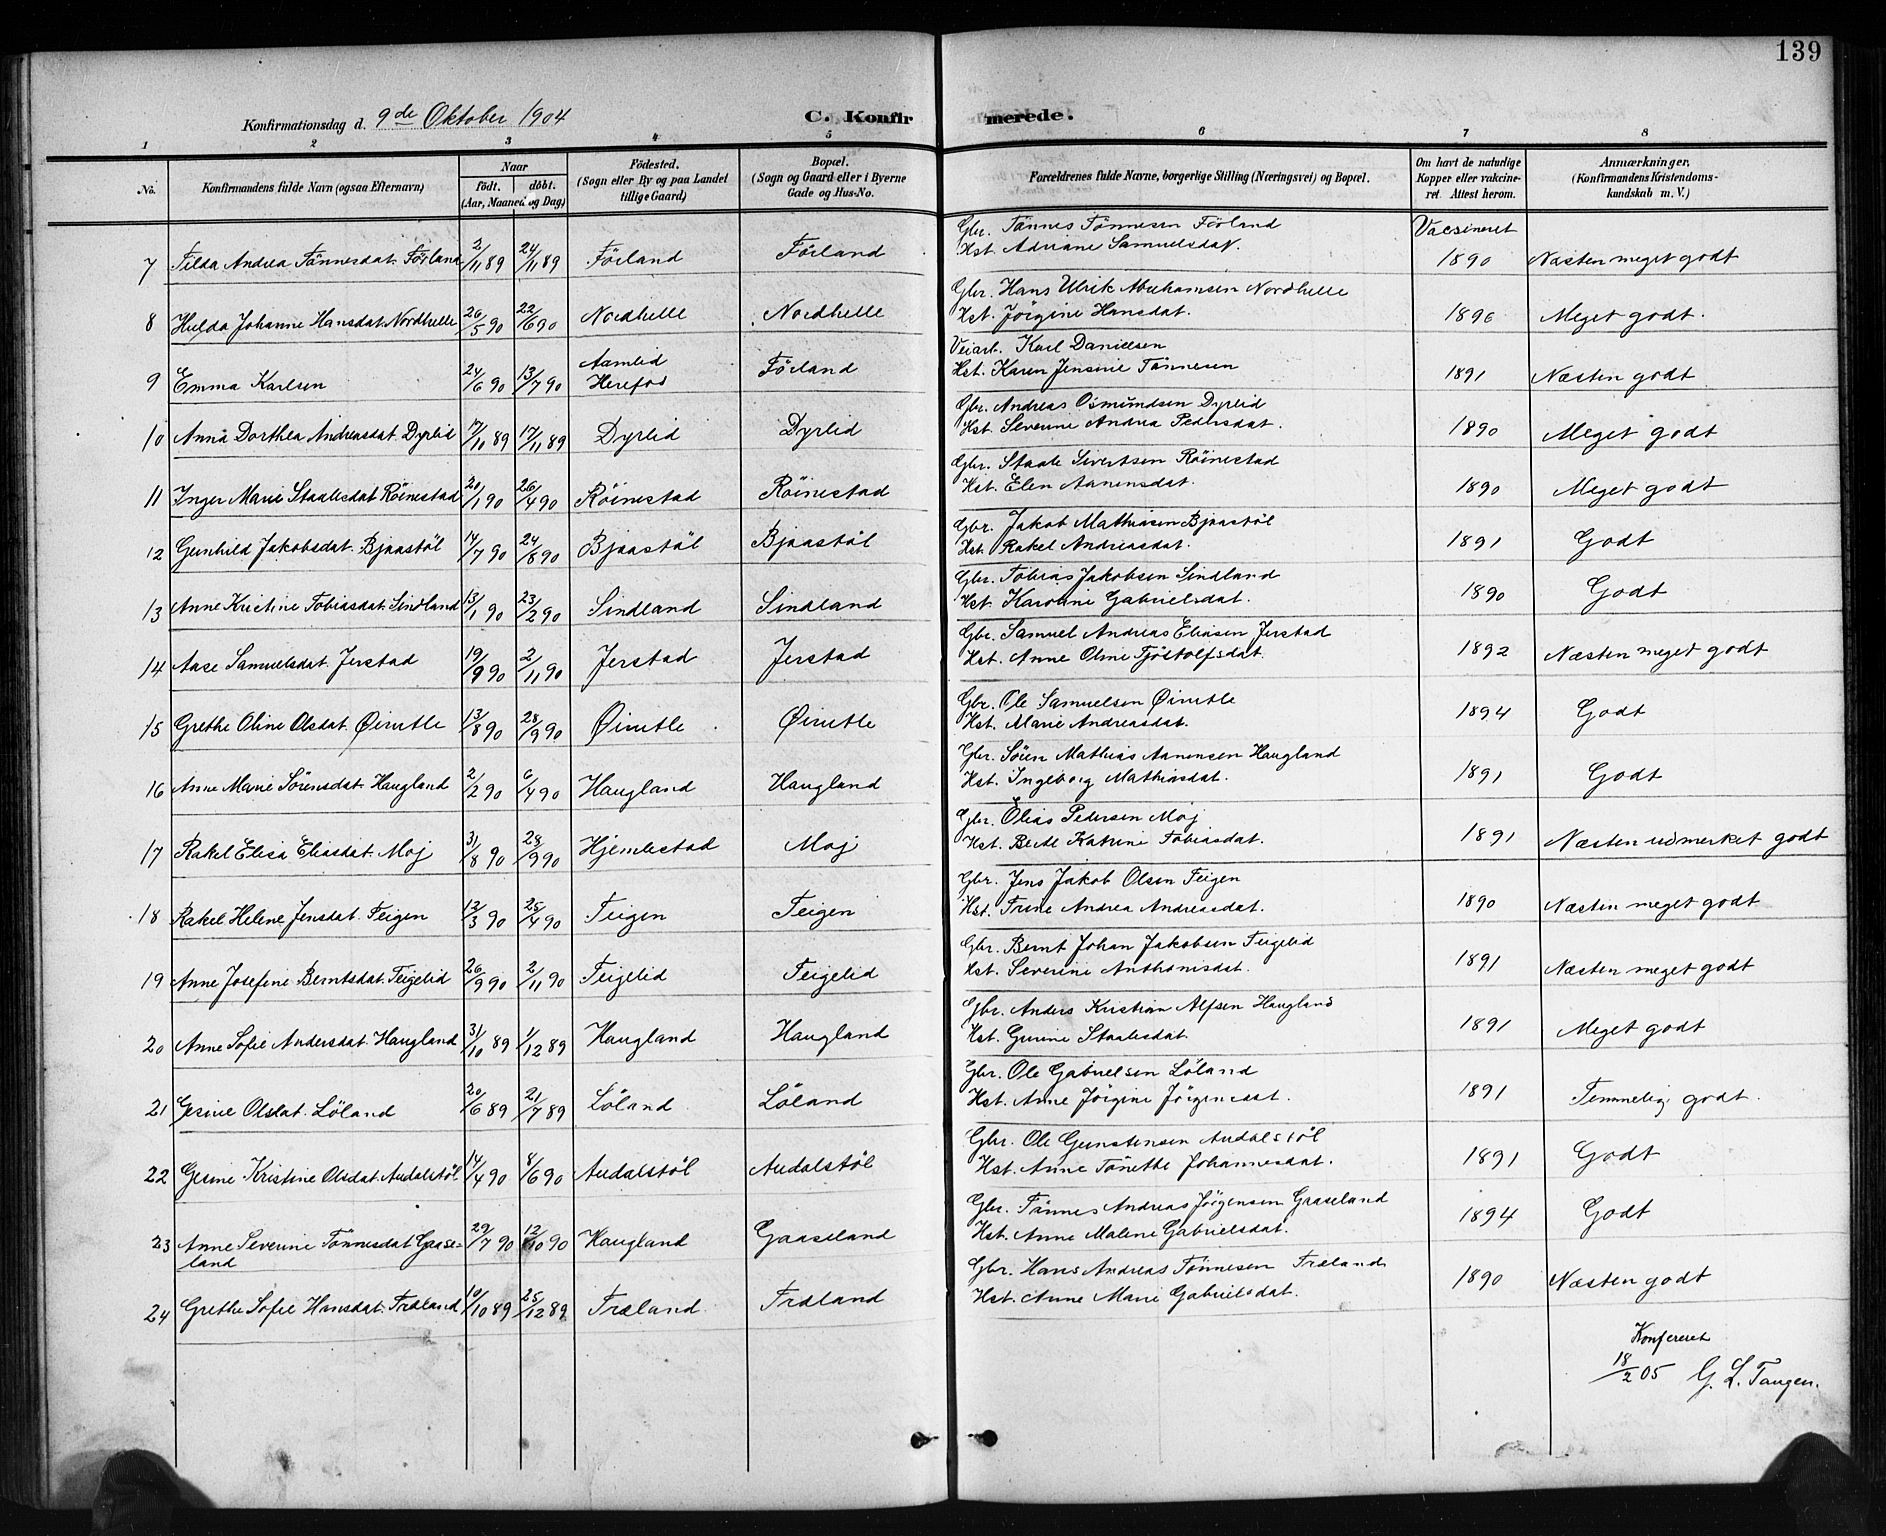 139
Konfirmationsdag d. 9de Oktober 1904 C. Konfirmerede.
1 2 3 4 5 6 7 8
No. Konfirmandens fulde Navn (ogsaa Efternavn) Naar födt. döbt. (Aar, Maaned og Dag) Födested. (Sogn eller By og paa Landet tillige Gaard) Bopæl. (Sogn og Gaard eller i Byerne Gade og Hus-No. Forældrenes fulde Navne, borgerlige Stilling (Næringsvei) og Bopæl. Om havt de naturlige Kopper eller vakcineret. Attest herom. Anmærkninger. (Konfirmandens Kristendomskundskab m. V.)
Gbr. Tönnes Tönnesen Förland Vacsineret
7 Tilda Andrea Tönnesdat. Förland 2/11 89 24/11 89 Förland Förland Hst. Adriane Samuelsdat. 1890 Næsten meget godt
Gbr. Hans Ulrik Abrahamsen Nordhelle
8 Hulda Johanne Hansdat. Nordhelle 26/5 90 22/6 90 Nordhelle Nordhelle Hst. Jörgine Hansdat. 1896 Meget godt.
Aamlid Veiarb. Karl Danielsen
9 Emma Karlsen 24/6 90 13/7 90 Herefos Förland Hst. Karen Jensine Tönnesen 1891 Næsten godt
Gbr. Andreas Osmundsen Dyrlid
10 Anna Dorthea Andreasdat. Dyrlid 17/10 89 17/11 89 Dyrlid Dyrlid Hst. Severine Andrea Pedersdat. 1890 Meget godt
Gbr. Staale Sivertsen Röinestad
11 Inger Marie Staalesdat. Röinestad 20/1 90 26/4 90 Röinestad Röinestad Hst. Elen Aanensdat. 1890 Meget godt
Gbr. Jakob Mathiasen Bjaastöl
12 Gunhild Jakobsdat. Bjaastöl 14/7 90 24/8 90 Bjaastöl Bjaastöl Hst. Rakel Andreasdat. 1891 Godt
Gbr. Tobias Jakobsen Sindland
13 Anne Kristine Tobiasdat. Sindland 13/1 90 23/2 90 Sindland Sindland Hst. Karoline Gabrielsdat. 1890 Godt
Gbr. Samuel Andreas Eliasen Jerstad
14 Aase Samuelsdat. Jerstad 19/9 90 2/11 90 Jerstad Jerstad Hst. Anne Oline Tjöstolfsdat. 1892 Næsten meget godt
Gbr. Ole Samuelsen Øimtle
15 Grethe Oline Olsdat. Øimtle 13/8 90 28/9 90 Øimtle Øimtle Hst. Marie Andreasdat. 1894 Godt
Gbr. Sören Mathias Aanensen Haugland
16 Anne Marie Sörensdat. Haugland 2/2 90 6/4 90 Haugland Haugland Hst. Ingeborg Mathiasdat. 1891 Godt
Gbr. Elias Pedersen Moj
17 Rakel Elisa Eliasdat. Moj 31/8 90 28/9 90 Hjemlestad Moj Hst. Berte Katrine Tobiasdat. 1891 Næsten udmerket godt
Gbr. Jens Jakob Olsen Teigen
18 Rakel Helene Jensdat. Teigen 12/3 90 25/4 90 Teigen Teigen Hst. Trine Andrea Andreasdat. 1890 Næsten meget godt
Gbr. Bernt Johan Jakobsen Teigelid
19 Anne Josefine Berntsdat. Teigelid 26/9 90 2/11 90 Teigelid Teigelid Hst. Severine Anthonisdat. 1891 Næsten meget godt
Gbr. Anders Kristian Alfsen Haugland
20 Anne Sofie Andersdat. Haugland 31/10 89 1/12 89 Haugland Haugland Hst. Gurine Staalesdat. 1891 Meget godt
Gbr. Ole Gabrielsen Löland
21 Gesine Olsdat. Löland 20/6 89 21/7 89 Löland Löland Hst. Anne Jörgine Jörgensdat. 1891 Temmelig godt.
Gbr. Ole Gunstensen Audalstöl
22 Gesine Kristine Olsdat. Audalstöl 14/4 90 8/6 90 Audalstöl Audalstöl Hst. Anne Tönette Johannesdat. 1891 Godt
Gbr. Tönnes Andreas Jörgensen Graseland
23 Anne Severine Tönnesdat. Gaase- 29/7 90 12/10 90 Haugland Gaaseland Hst. Anne Malene Gabrielsdat. 1894 Godt
land
Gbr. Hans Andreas Tönnesen Træland
24 Grethe Sofie Hansdat. Træland 10/10 89 25/12 89 Træland. Træland Hst. Anne Marie Gabrielsdat. 1890 Næsten godt
Konfereret
18/2 05 G. L. Tangen.